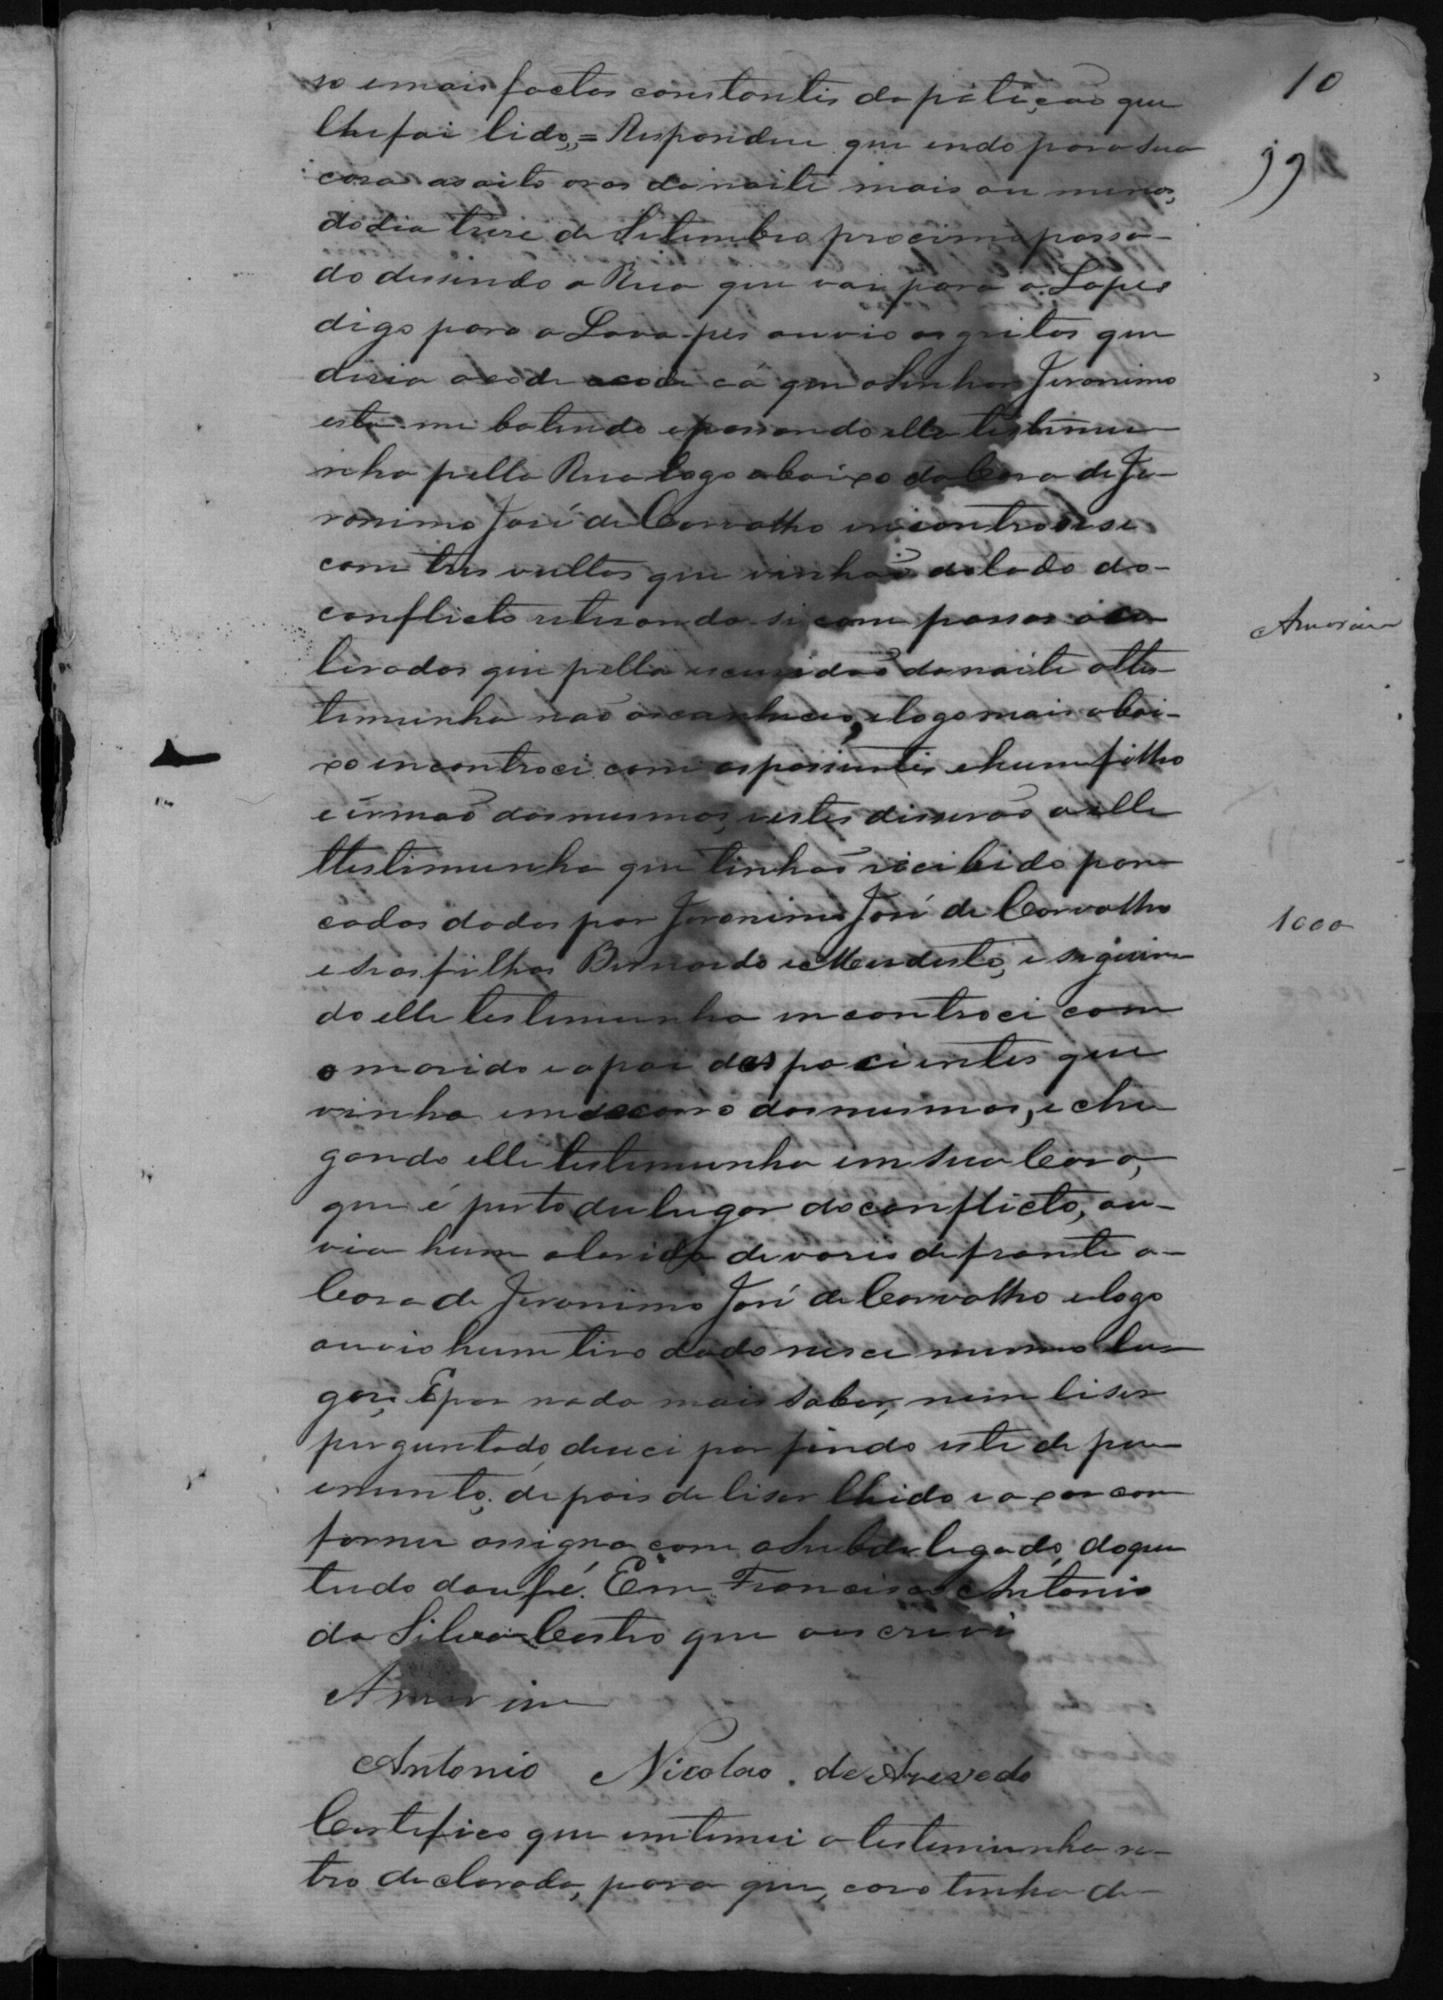 10
99
so e mais factos constantis da pitiçaõ que
lhe foi lida,, = Respondeu que indo para sua
casa as oito oras da noite mais ou menos,
do dia treze de Setembro procimo passa-
do dessendo a Rua que vai para o Lopes
digo para o Lava-pes ouvio os gritos que
disia acode acode cá que o Senhor Jeronimo
esta me batendo e passando elle testimu
nha pella Rua logo abaixo da Casa de Je-
ronimo José de Carvalho incontrou se
com tres vultos que vinhaõ do lado do
conflicto retirando-se com passos ace
lerados que pella escuridaõ da noite elle tes
timunha naõ os conheceo, e logo mais abai-
xo incontrei com os passientes e hum filho
e irmaõ dos mesmos, e estes disseraõ a elle
ttestimunha que tinhaõ recibido pan
cadas dadas por Jeronimo José de Carvalho
e seos filhos Bernardo e Modesto, e siguin
do elle testimunha incontrei com
o marido e o pai dos pacientes que
vinha em socorro dos mesmos, e che
gando elle testimunha em sua Casa,
que é perto du lugar do conflicto, ou-
vio hum alarido de vozes de fronte a
Casa de Jeronimo José de Carvalho e logo
ouvio hum tiro dado nesce mesmo lu
gar, E por nada mais saber, nem li ser
perguntado, deuci por findo este de poi
mento, de pois de li ser lhido e axar con
forme assigna com o Subdelegado, do que
tudo dou fé. Eu Francisco Antonio
da Silva Castro que o escrivi
Amorim
Antonio Nicolao de Azevedo
Certifico que intimei a testimunha re-
tro declarada, para que, caso tenha de
Amorim
1000